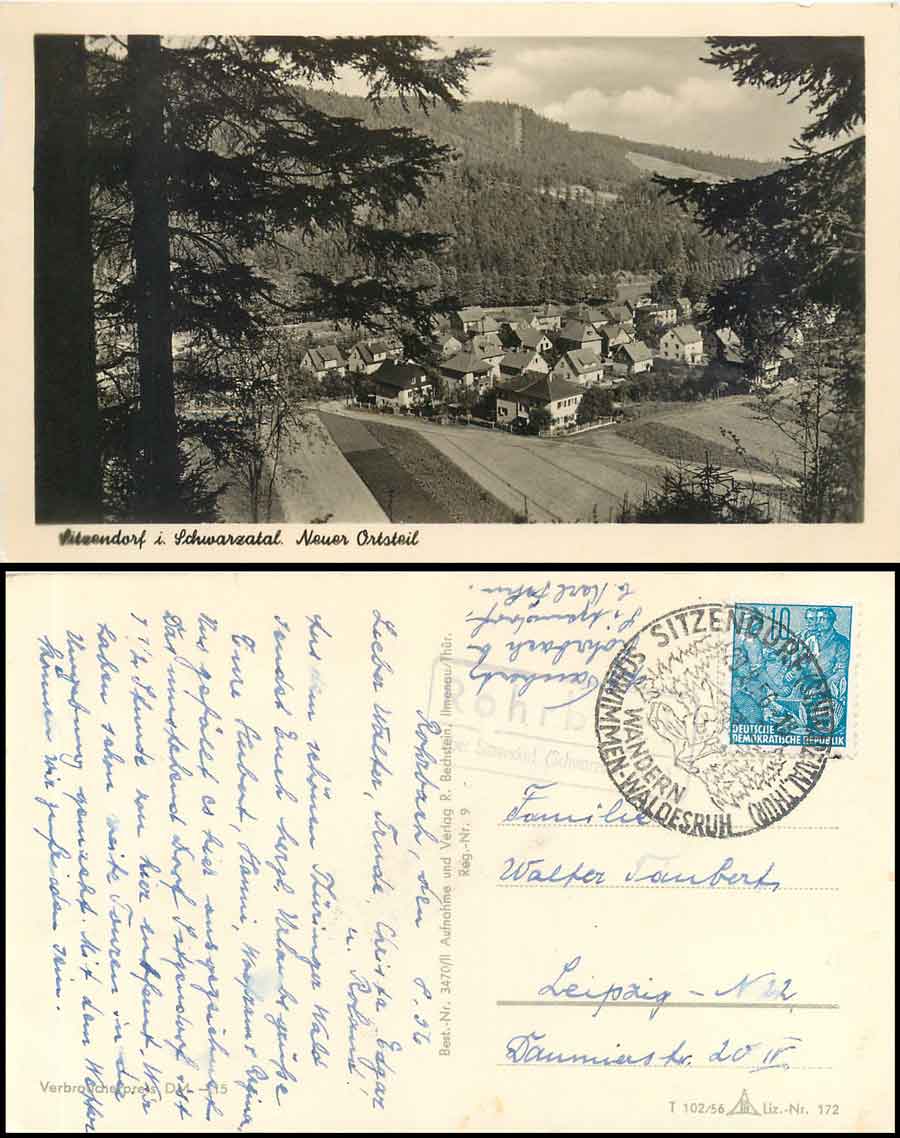 Sitzendorf i. Schwarzatal. Neuer Ortsteil
Taubert
Rohrbach b.
Sitzendorf
b. Karl Jahn.
Rohrb
über Sitzendorf (Schwarz
SITZENDORF
(THÜR)
SCHWIMMEN-WALDESRUH
WANDERN
10
DEUTSCHE
DEMOKRATISCHE REPUBLIK
Rohrbach, den 8.56
Lieber Walter, Trude, Christa, Edgar
u. Roland.
Aus dem schönen Thüringer Wald
sendet Euch herzl. Urlaubsgrüße
Eure Herbert, Hanni, Wolfram + Regina,
Uns gefällt es hier ausgezeichnet.
Das umstehend Dorf Sitzendorf ist
1 1/2 Stunde von hier entfernt. Wir
haben schon weite Touren in die
Umgebung gemacht. Mit dem Wetter
können wir zufrieden sein.
Best.-Nr. 3470/II Aufnahme und Verlag R. Bechstein, Ilmenau/Thür.
Reg.-Nr. 9
Familie
Walter Taubert,
Leipzig - N 22,
Daumierstr. 20 IV.
Verbraucherpreis DM -.15
T 102/56 Liz.-Nr. 172